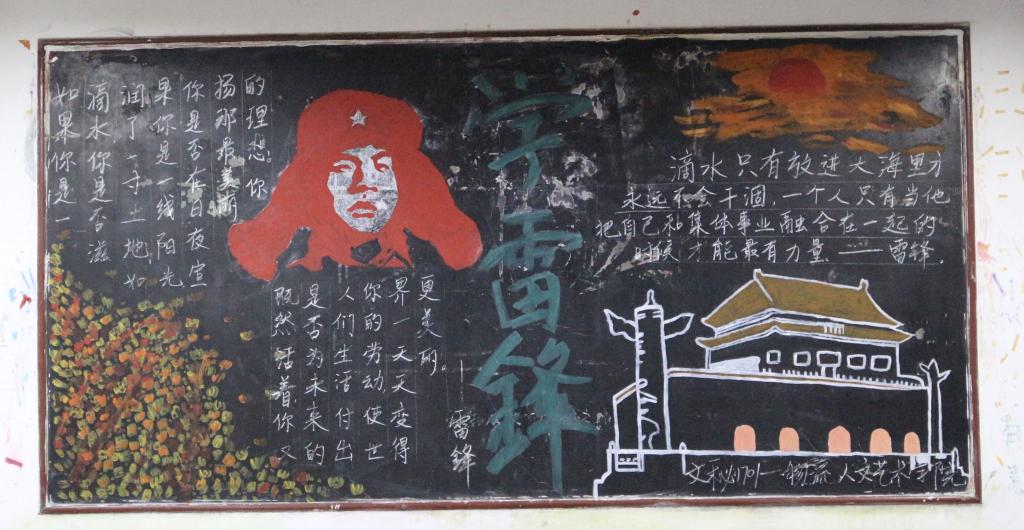 如果你是一
滴水你是否滋
润了一寸土地如
果你是一线阳光
你是否在日夜宣
扬那最美丽
的理想。你
既然活着你又
是否为未来的
人们生活付出
你的劳动使世
界一天天变得
更美丽。
——雷锋
学雷锋
滴水只有放进大海里才
永远不会干涸，一个人只有当他
把自己和集体事业融合在一起的
时候才能最有力量 ——雷锋.
文秘1701—物流人文艺术学院